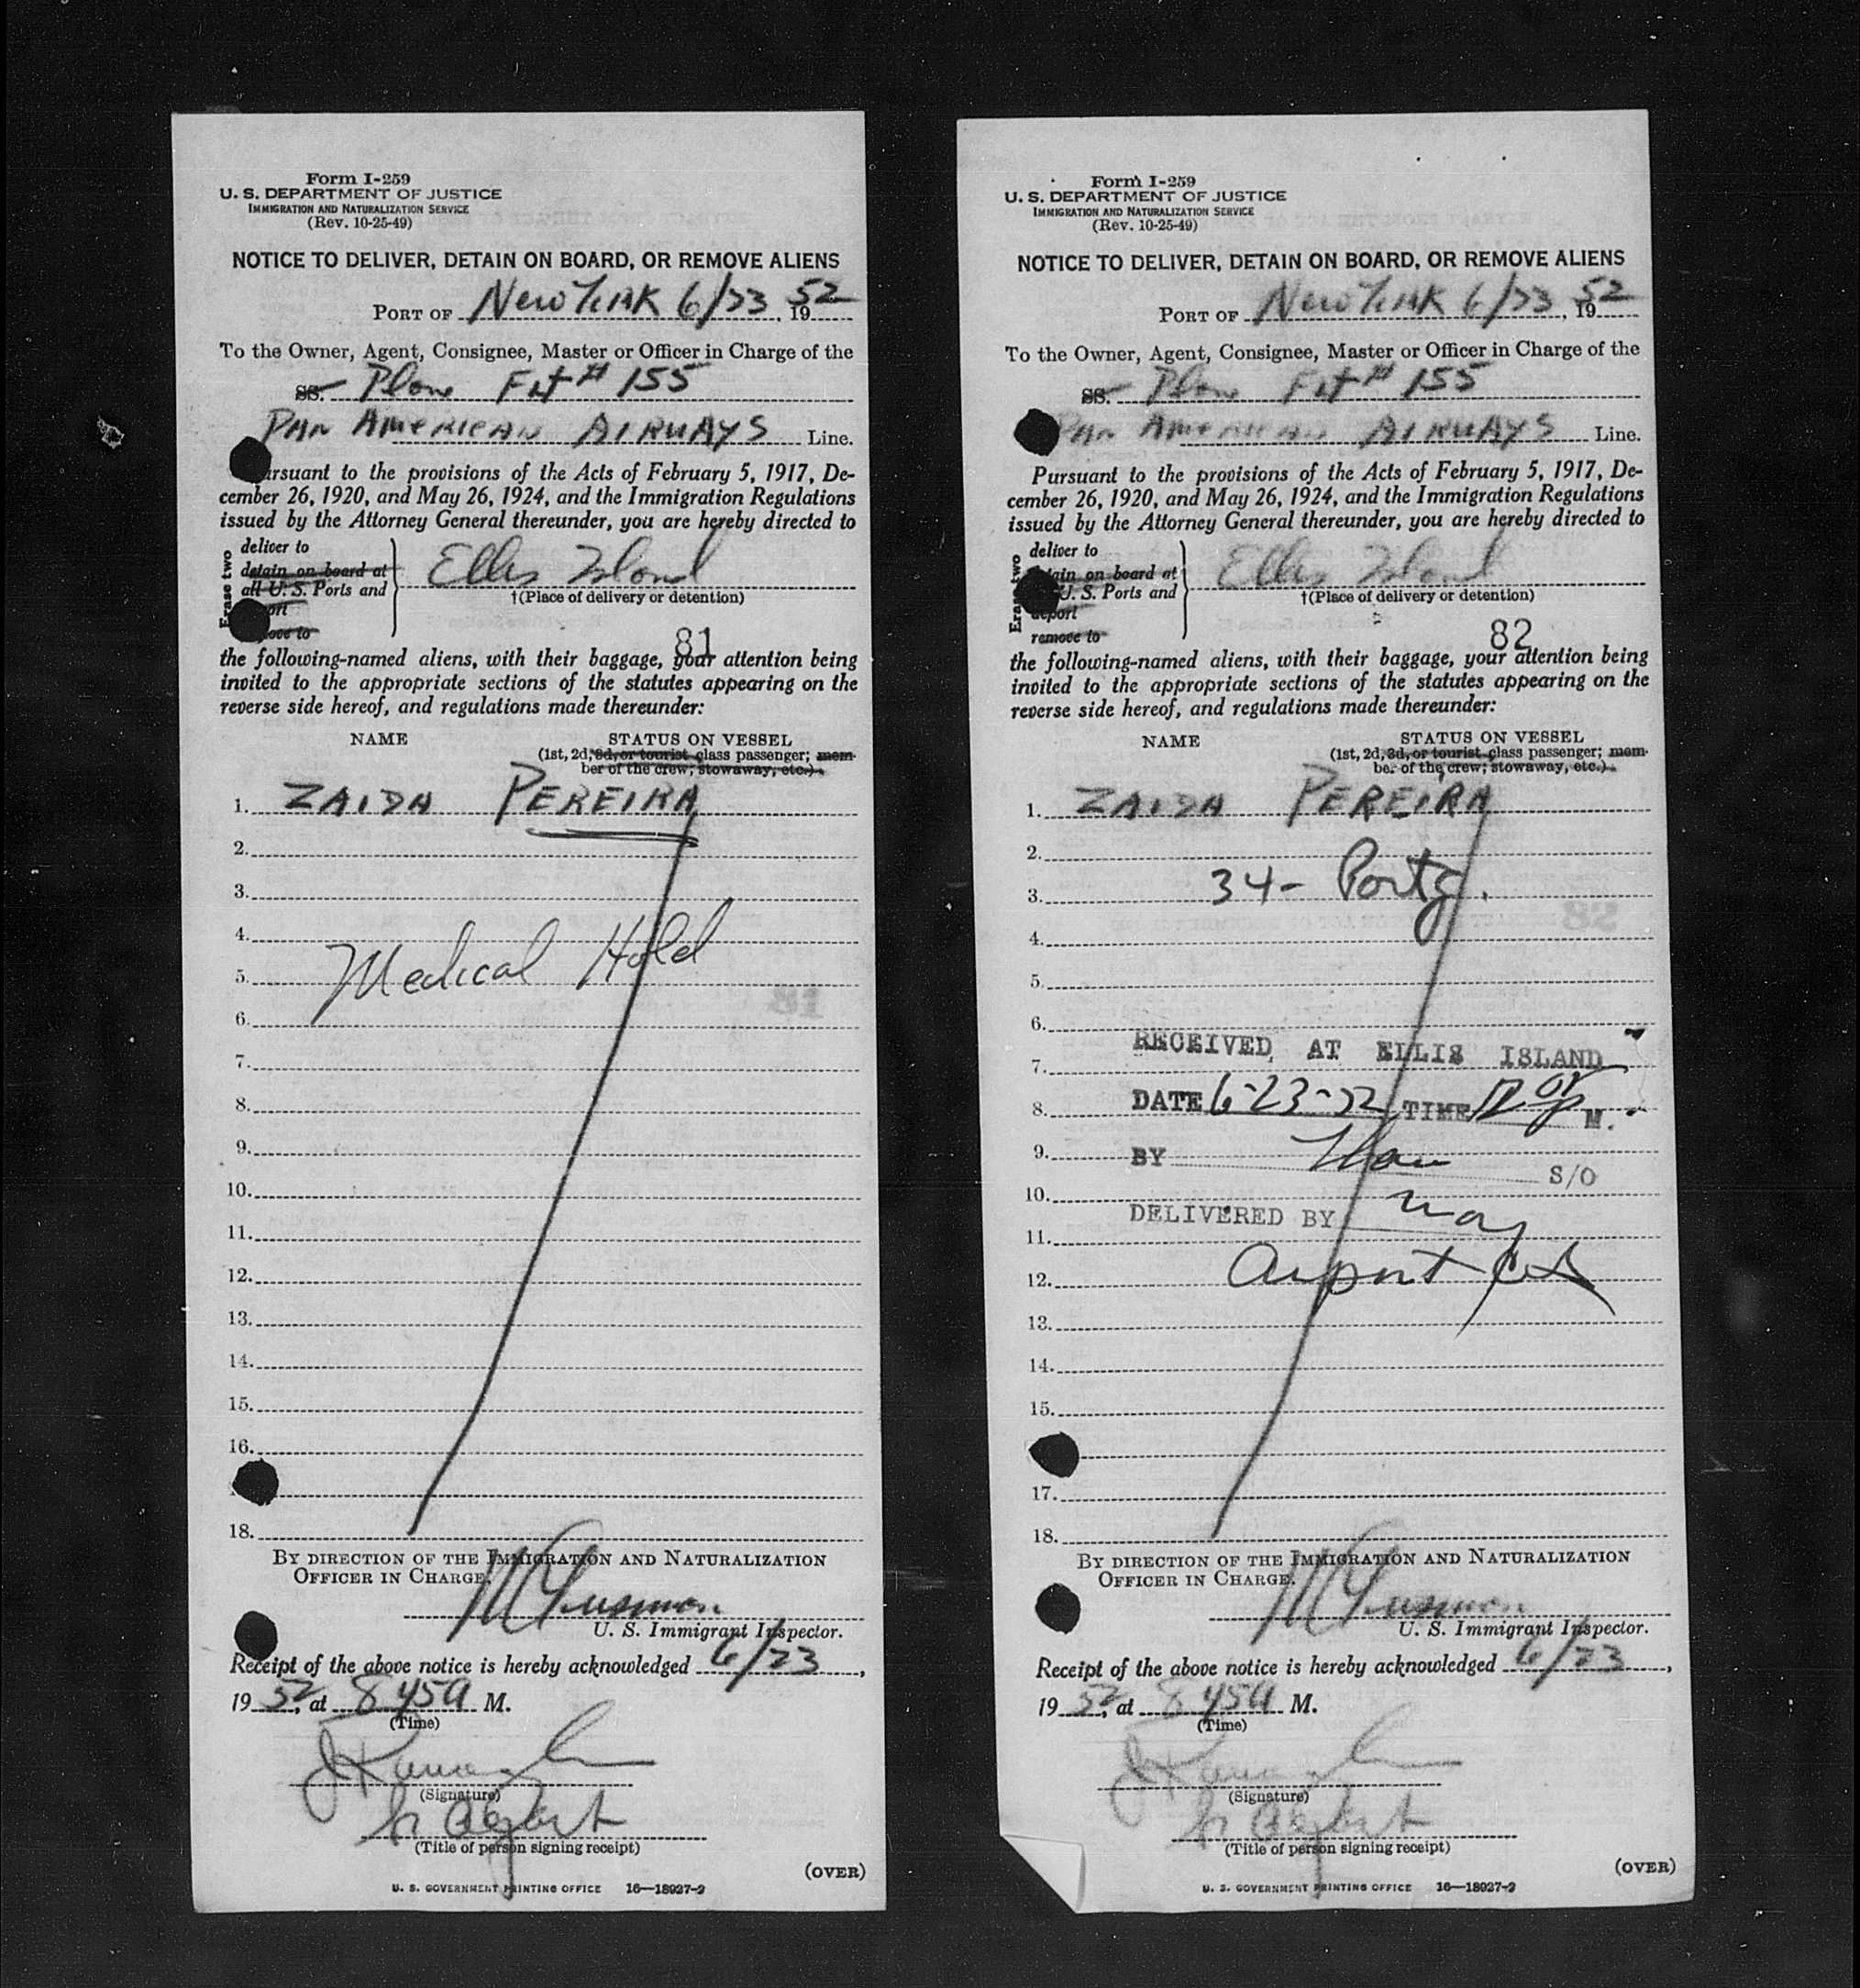 Form I-259
U. S. DEPARTMENT OF JUSTICE
IMMIGRATION AND NATURALIZATION SERVICE
(Rev. 10-25-49)
NOTICE TO DELIVER, DETAIN ON BOARD, OR REMOVE ALIENS
PORT OF New York 6/23, 19 52
To the Owner, Agent, Consignee, Master or Officer in Charge of the
SS. Plane Flt # 155
PAN AMERICAN AIRWAYS Line.
ursuant to the provisions of the Acts of February 5, 1917, De-
cember 26, 1920, and May 26, 1924, and the Immigration Regulations
issued by the Attorney General thereunder, you are hereby directed to
Erase two
deliver to
detain on board at
all U. S. Ports and
port
ove to
Ellis Island
†(Place of delivery or detention)
81
the following-named aliens, with their baggage, your attention being
invited to the appropriate sections of the statutes appearing on the
reverse side hereof, and regulations made thereunder:
NAME STATUS ON VESSEL
(1st, 2d, 3d, or tourist class passenger; mem-
ber of the crew; stowaway, etc.)
1. ZAIDA PEREIRA
2.
3.
4.
Medical Hold
5.
6.
7.
8.
9.
10.
11.
12.
13.
14.
15.
16.
18.
BY DIRECTION OF THE IMMIGRATION AND NATURALIZATION
OFFICER IN CHARGE.
U. S. Immigrant Inspector.
Receipt of the above notice is hereby acknowledged 6/23,
19 52, at 8 45a M.
(Time)
(Signature)
Agent
(Title of person signing receipt)
(OVER)
U. S. GOVERNMENT PRINTING OFFICE 16—18927-2
Form I-259
U. S. DEPARTMENT OF JUSTICE
IMMIGRATION AND NATURALIZATION SERVICE
(Rev. 10-25-49)
NOTICE TO DELIVER, DETAIN ON BOARD, OR REMOVE ALIENS
PORT OF New York 6/23, 19 52
To the Owner, Agent, Consignee, Master or Officer in Charge of the
SS. Plane Flt # 155
PAN AMERICAN AIRWAYS Line.
Pursuant to the provisions of the Acts of February 5, 1917, De-
cember 26, 1920, and May 26, 1924, and the Immigration Regulations
issued by the Attorney General thereunder, you are hereby directed to
Erase two
deliver to
tain on board at
U. S. Ports and
deport
remove to
Ellis Island
†(Place of delivery or detention)
82
the following-named aliens, with their baggage, your attention being
invited to the appropriate sections of the statutes appearing on the
reverse side hereof, and regulations made thereunder:
NAME STATUS ON VESSEL
(1st, 2d, 3d, or tourist class passenger; mem-
ber of the crew; stowaway, etc.)
1. ZAIDA PEREIRA
2.
34- Portg.
3.
4.
5.
6.
RECEIVED AT ELLIS ISLAND
7.
8. DATE 6-23-52 TIME M.
9. BY S/O
10.
DELIVERED BY
11.
12. Airport
13.
14.
15.
17.
18.
BY DIRECTION OF THE IMMIGRATION AND NATURALIZATION
OFFICER IN CHARGE.
U. S. Immigrant Inspector.
Receipt of the above notice is hereby acknowledged 6/23,
19 52, at 8 45a M.
(Time)
(Signature)
Agent
(Title of person signing receipt)
(OVER)
U. S. GOVERNMENT PRINTING OFFICE 16—18927-2